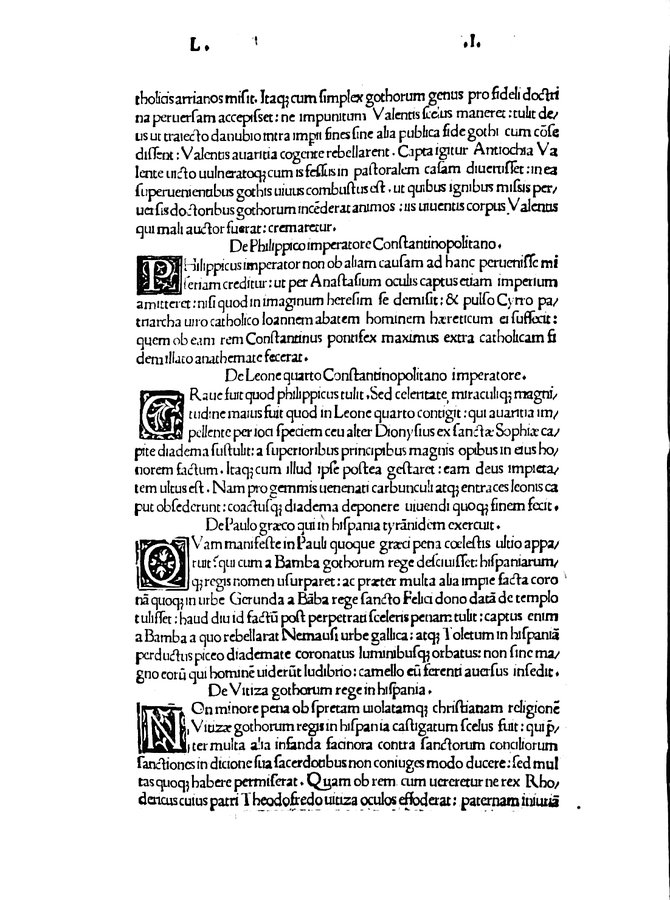 L. .I.
tholicis arrianos misit. Itaq; cum simplex gothorum genus pro fideli doctri
na peruersam accepisset: ne impunitum Valentis scelus maneret: tulit de/
us ut traiecto danubio intra imprii fines sine alia publica fide gothi cum cōse
dissent: Valentis auaritia cogente rebellarent. Capta igitur Antiochia Va
lente uicto uulneratoq; cum is fessus in pastoralem casam diuertisset: in ea
superuenientibus gothis uiuus combustus est. ut quibus ignibus missis per/
uersis doctoribus gothorum incēderat animos: iis uiuentis corpus Valentis
qui mali auctor fuerat: cremaretur.
De Philippico imperatore Constantinopolitano.
PHilippicus imperator non ob aliam causam ad hanc peruenisse mi
seriam creditur: ut per Anastasium oculis captus etiam imperium
amitteret: nisi quod in imaginum heresim se demisit: & pulso Cyrro pa/
triarcha uiro catholico Ioannem abatem hominem hæreticum ei suffecit:
quem ob eam rem Constantinus pontifex maximus extra catholicam fi
dem illato anathemate fecerat.
De Leone quarto Constantinopolitano imperatore.
GRaue fuit quod philippicus tulit. Sed celeritate miraculiq; magni/
tudine maius fuit quod in Leone quarto contigit: qui auaritia im/
pellente per ioci speciem ceu alter Dionysius ex sanctæ Sophiæ ca/
pite diadema sustulit: a superioribus principibus magnis opibus in eius ho/
norem factum. Itaq; cum illud ipse postea gestaret: eam deus impieta/
tem ultus est. Nam pro gemmis uenenati carbunculi atq; entraces leonis ca
put obsederunt: coactusq; diadema deponere uiuendi quoq; finem fecit.
De Paulo græco qui in hispania tyrānidem exercuit.
QVam manifeste in Pauli quoque græci pena cœlestis ultio appa/
ruit: qui cum a Bamba gothorum rege desciuisset: hispaniarum/
q; regis nomen usurparet: ac præter multa alia impie facta coro
nā quoq; in urbe Gerunda a Bāba rege sancto Felici dono datā de templo
tulisset: haud diu id factū post perpetrati sceleris penam: tulit: captus enim
a Bamba a quo rebellarat Nemausi urbe gallica: atq; Toletum in hispaniā
perductus piceo diademate coronatus luminibusq; orbatus: non sine ma/
gno eorū qui hominē uiderūt ludibrio: camello eū ferenti auersus insedit.
De Vitiza gothorum rege in hispania.
NOn minore pena ob spretam uiolatamq; christianam religionē
Vitizæ gothorum regis in hispania castigatum scelus fuit: qui p̄/
ter multa alia infanda facinora contra sanctorum conciliorum
sanctiones in dicione sua sacerdotibus non coniuges modo ducere: sed mul
tas quoq; habere permiserat. Quam ob rem cum uereretur ne rex Rho/
dericus cuius patri Theodofredo uitiza oculos effoderat: paternam iniuriā